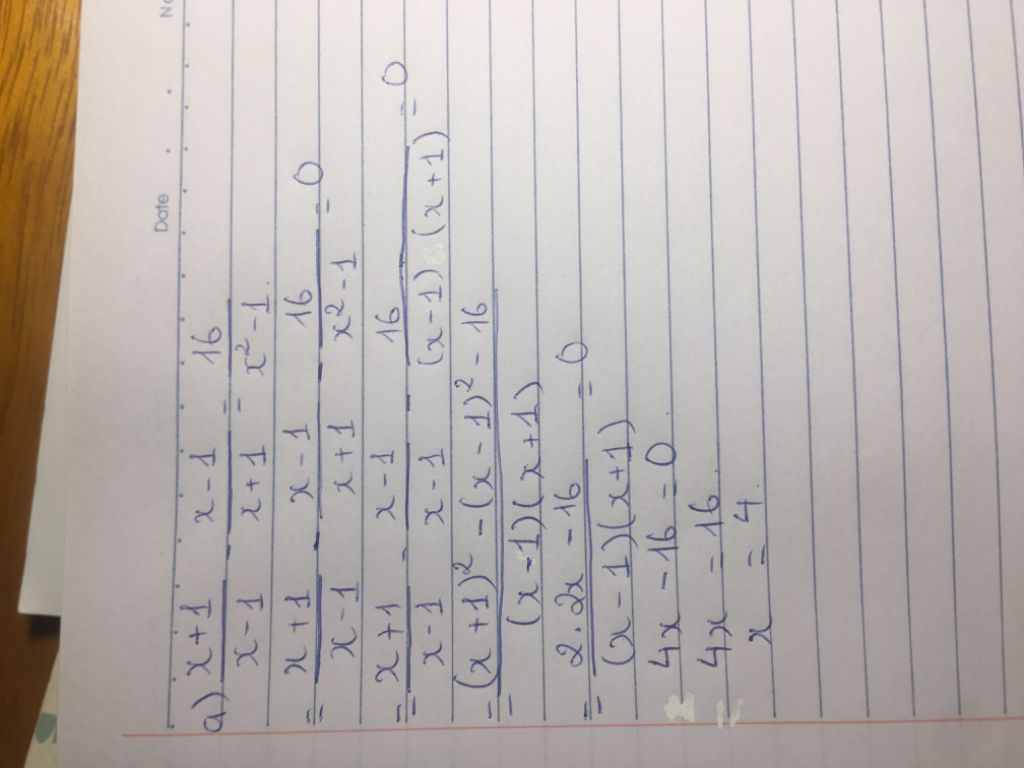 No
Date
a) x+1/x-1 - x-1/x+1 = 16/x²-1
= x+1/x-1 - x-1/x+1 - 16/x²-1 = 0
= x+1/x-1 - x-1/x-1 - 16/(x-1)(x+1) = 0
= (x+1)² - (x-1)² - 16/(x-1)(x+1)
= 2.2x - 16/(x-1)(x+1) = 0
4x - 16 = 0
4x = 16
x = 4